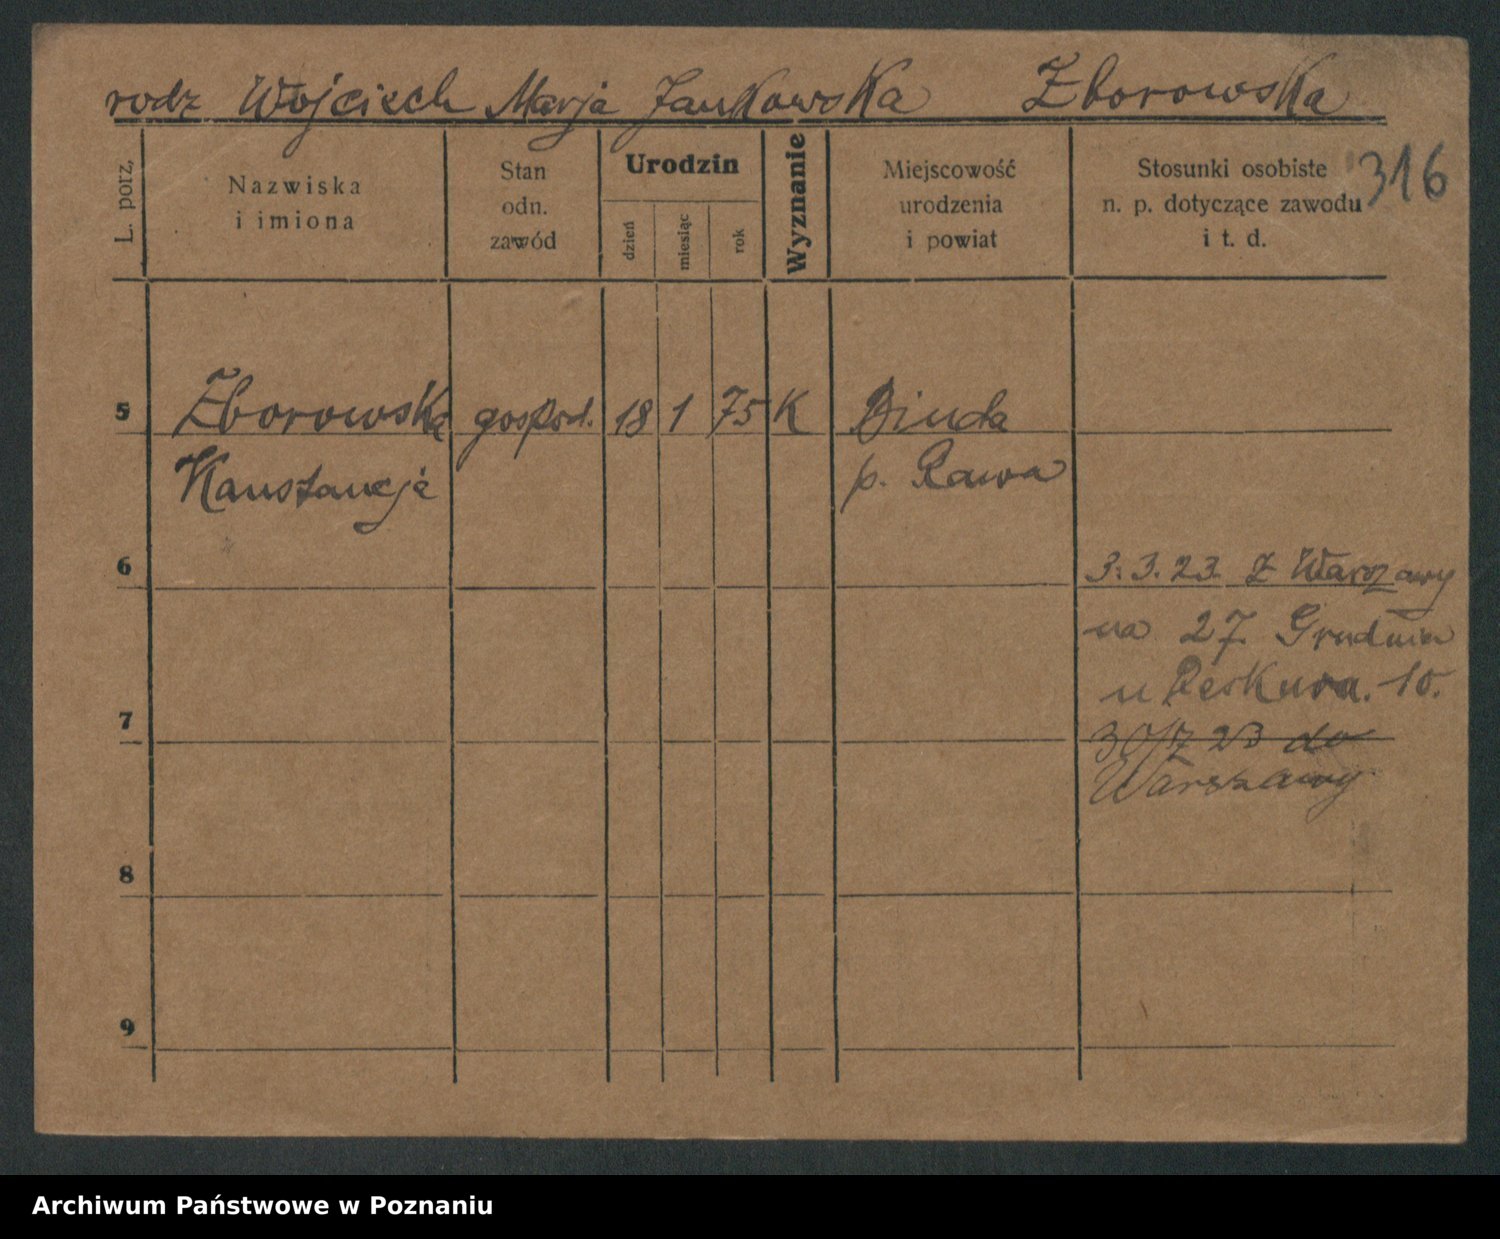 rodz Wojciech Marja Jankowska Zborowska
316
L. porz.
Nazwiska
i imiona
Stan
odn.
zawód
Urodzin
dzień
miesiąc
rok
Wyznanie
Miejscowość
urodzenia
i powiat
Stosunki osobiste
n. p. dotyczące zawodu
i t. d.
5 Zborowska gospod. 18 1 75 K
Konstancja p. Rawa
6 3.3.23. z Warszawy
na 27 Grudnia
u 10.
7 23 do
Warszawy
8
9
Archiwum Państwowe w Poznaniu